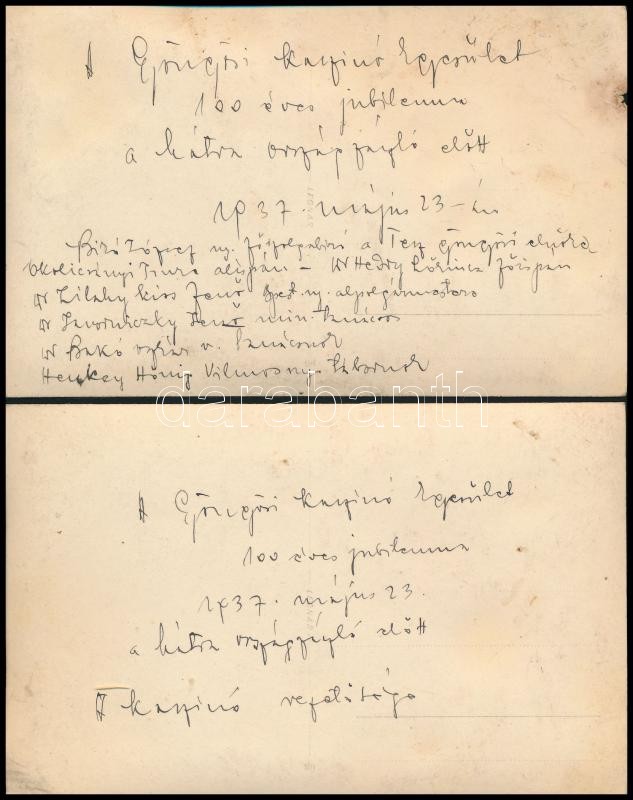 A Gyöngyösi Kaszinó Egyesület
100 éves jubileuma
a Mátra országzászló előtt
1937. május 23-án
Bíró József ny. főszolgabíró a Ten gyöngyösi elnöke
Okolicsányi Imre alispán – Dr Hedry Lőrincz főispán
Dr Lilahy Kiss Jenő Bpest. ny. alpolgármestere
Dr Jenő min. tanácsos
Dr Bakó v. tanácsnok
Henkey Hőnig Vilmos ny. tábornok
darabanth
A Gyöngyösi Kaszinó Egyesület
100 éves jubileuma
1937. május 23.
a Mátra országzászló előtt
A Kaszinó vezetősége